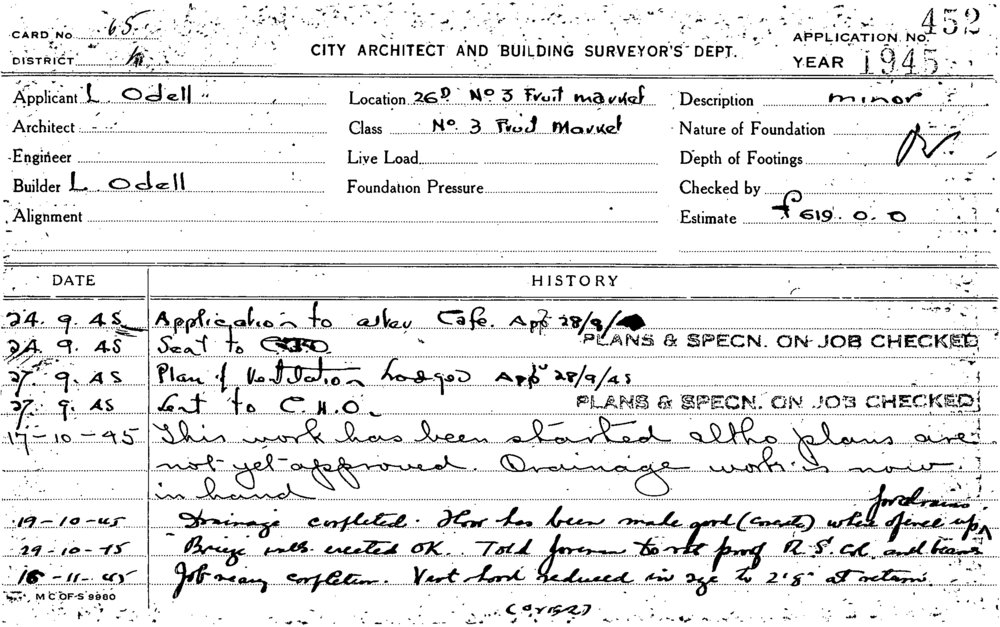 CARD No. 65
DISTRICT
CITY ARCHITECT AND BUILDING SURVEYOR'S DEPT.
APPLICATION No. 452
YEAR 1945
Applicant L Odell
Location 26D No 3 Fruit market
Description minor
Architect
Class No. 3 Fruit Market
Nature of Foundation
Engineer
Live Load
Depth of Footings
Builder L Odell
Foundation Pressure
Checked by
Alignment
Estimate £619.0.0
DATE HISTORY
24. 9. 45 Application to alter Cafe. Appd 28/9/
24. 9. 45 Sent to
PLANS & SPECN. ON JOB CHECKED
27. 9. 45 Plan of Ventilation Lodged Appd 28/9/45
27. 9. 45 Sent to C.H.O.
PLANS & SPECN. ON JOB CHECKED
17-10-45 This work has been started altho plans are
not yet approved. Drainage work is now
in hand
for drains
19-10-45 Drainage completed. Floor has been made good (concrete) where opened up
29-10-45 Breeze walls erected OK. Told foreman to proof R.S. Col. and beams
16-11-45 Job near completion. Vent hood reduced in size to 2'8" at return.
M C OF S 9980
(over)